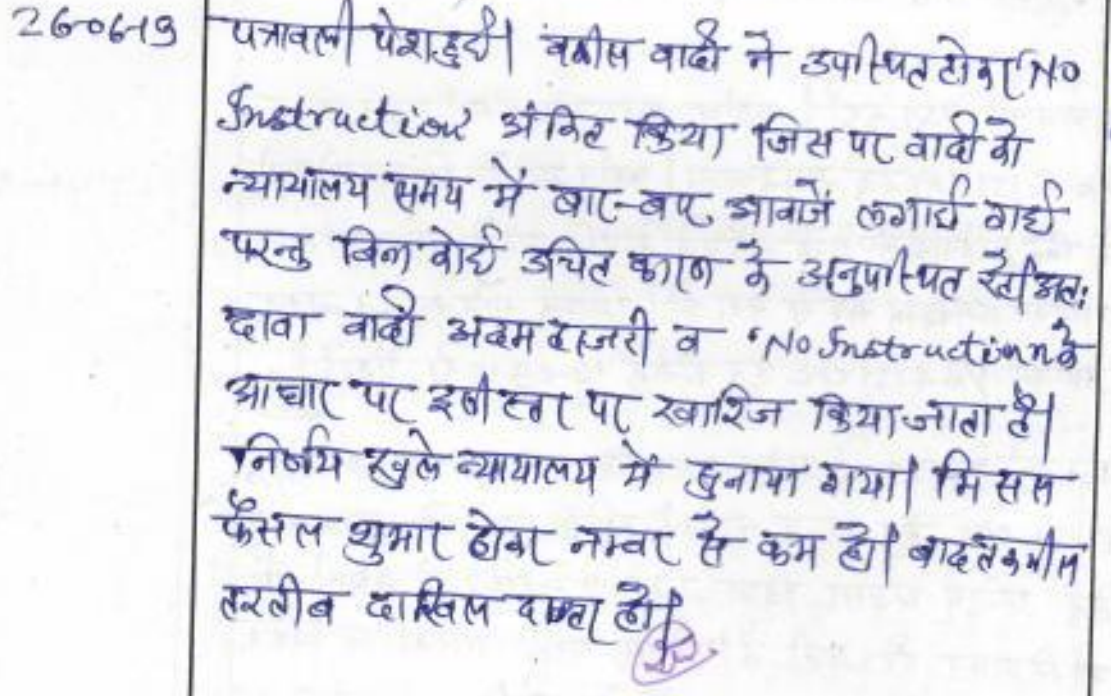 26-06-19 पत्रावली पेश हुई। वकील वादी ने उपस्थित होकर 'No
Instruction' अंकित किया जिस पर वादी को
न्यायालय समय में बार-बार आवाजें लगाई गई
परन्तु बिना कोई उचित कारण के अनुपस्थित रहे। अतः
दावा वादी अदम हाजरी व 'No Instruction के
आधार पर इसी स्तर पर खारिज किया जाता है।
निर्णय खुले न्यायालय में सुनाया गया। मिसल
फैसल शुमार होकर नम्बर से कम हो। बाद तकमील
तरतीब दाखिल दफ्तर हो।